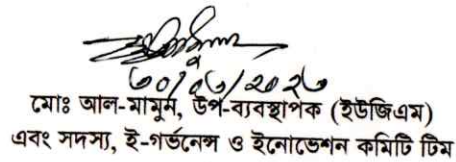 ৩০/০৩/২০২৩
মোঃ আল-মামুন, উপ-ব্যবস্থাপক (ইউজিএম)
এবং সদস্য, ই-গর্ভনেন্স ও ইনোভেশন কমিটি টিম